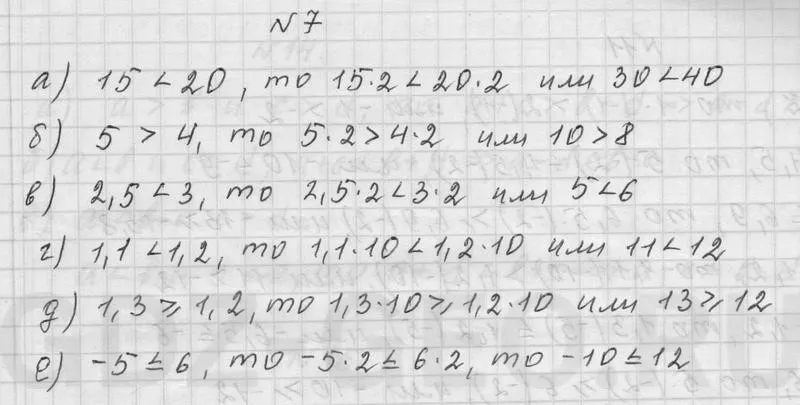 №7
а) 15 < 20, то 15·2 < 20·2 или 30 < 40
б) 5 > 4, то 5·2 > 4·2 или 10 > 8
в) 2,5 < 3, то 2,5·2 < 3·2 или 5 < 6
г) 1,1 < 1,2, то 1,1·10 < 1,2·10 или 11 < 12
д) 1,3 ⩾ 1,2, то 1,3·10 ⩾ 1,2·10 или 13 ⩾ 12
е) -5 ≤ 6, то -5·2 ≤ 6·2, то -10 ≤ 12